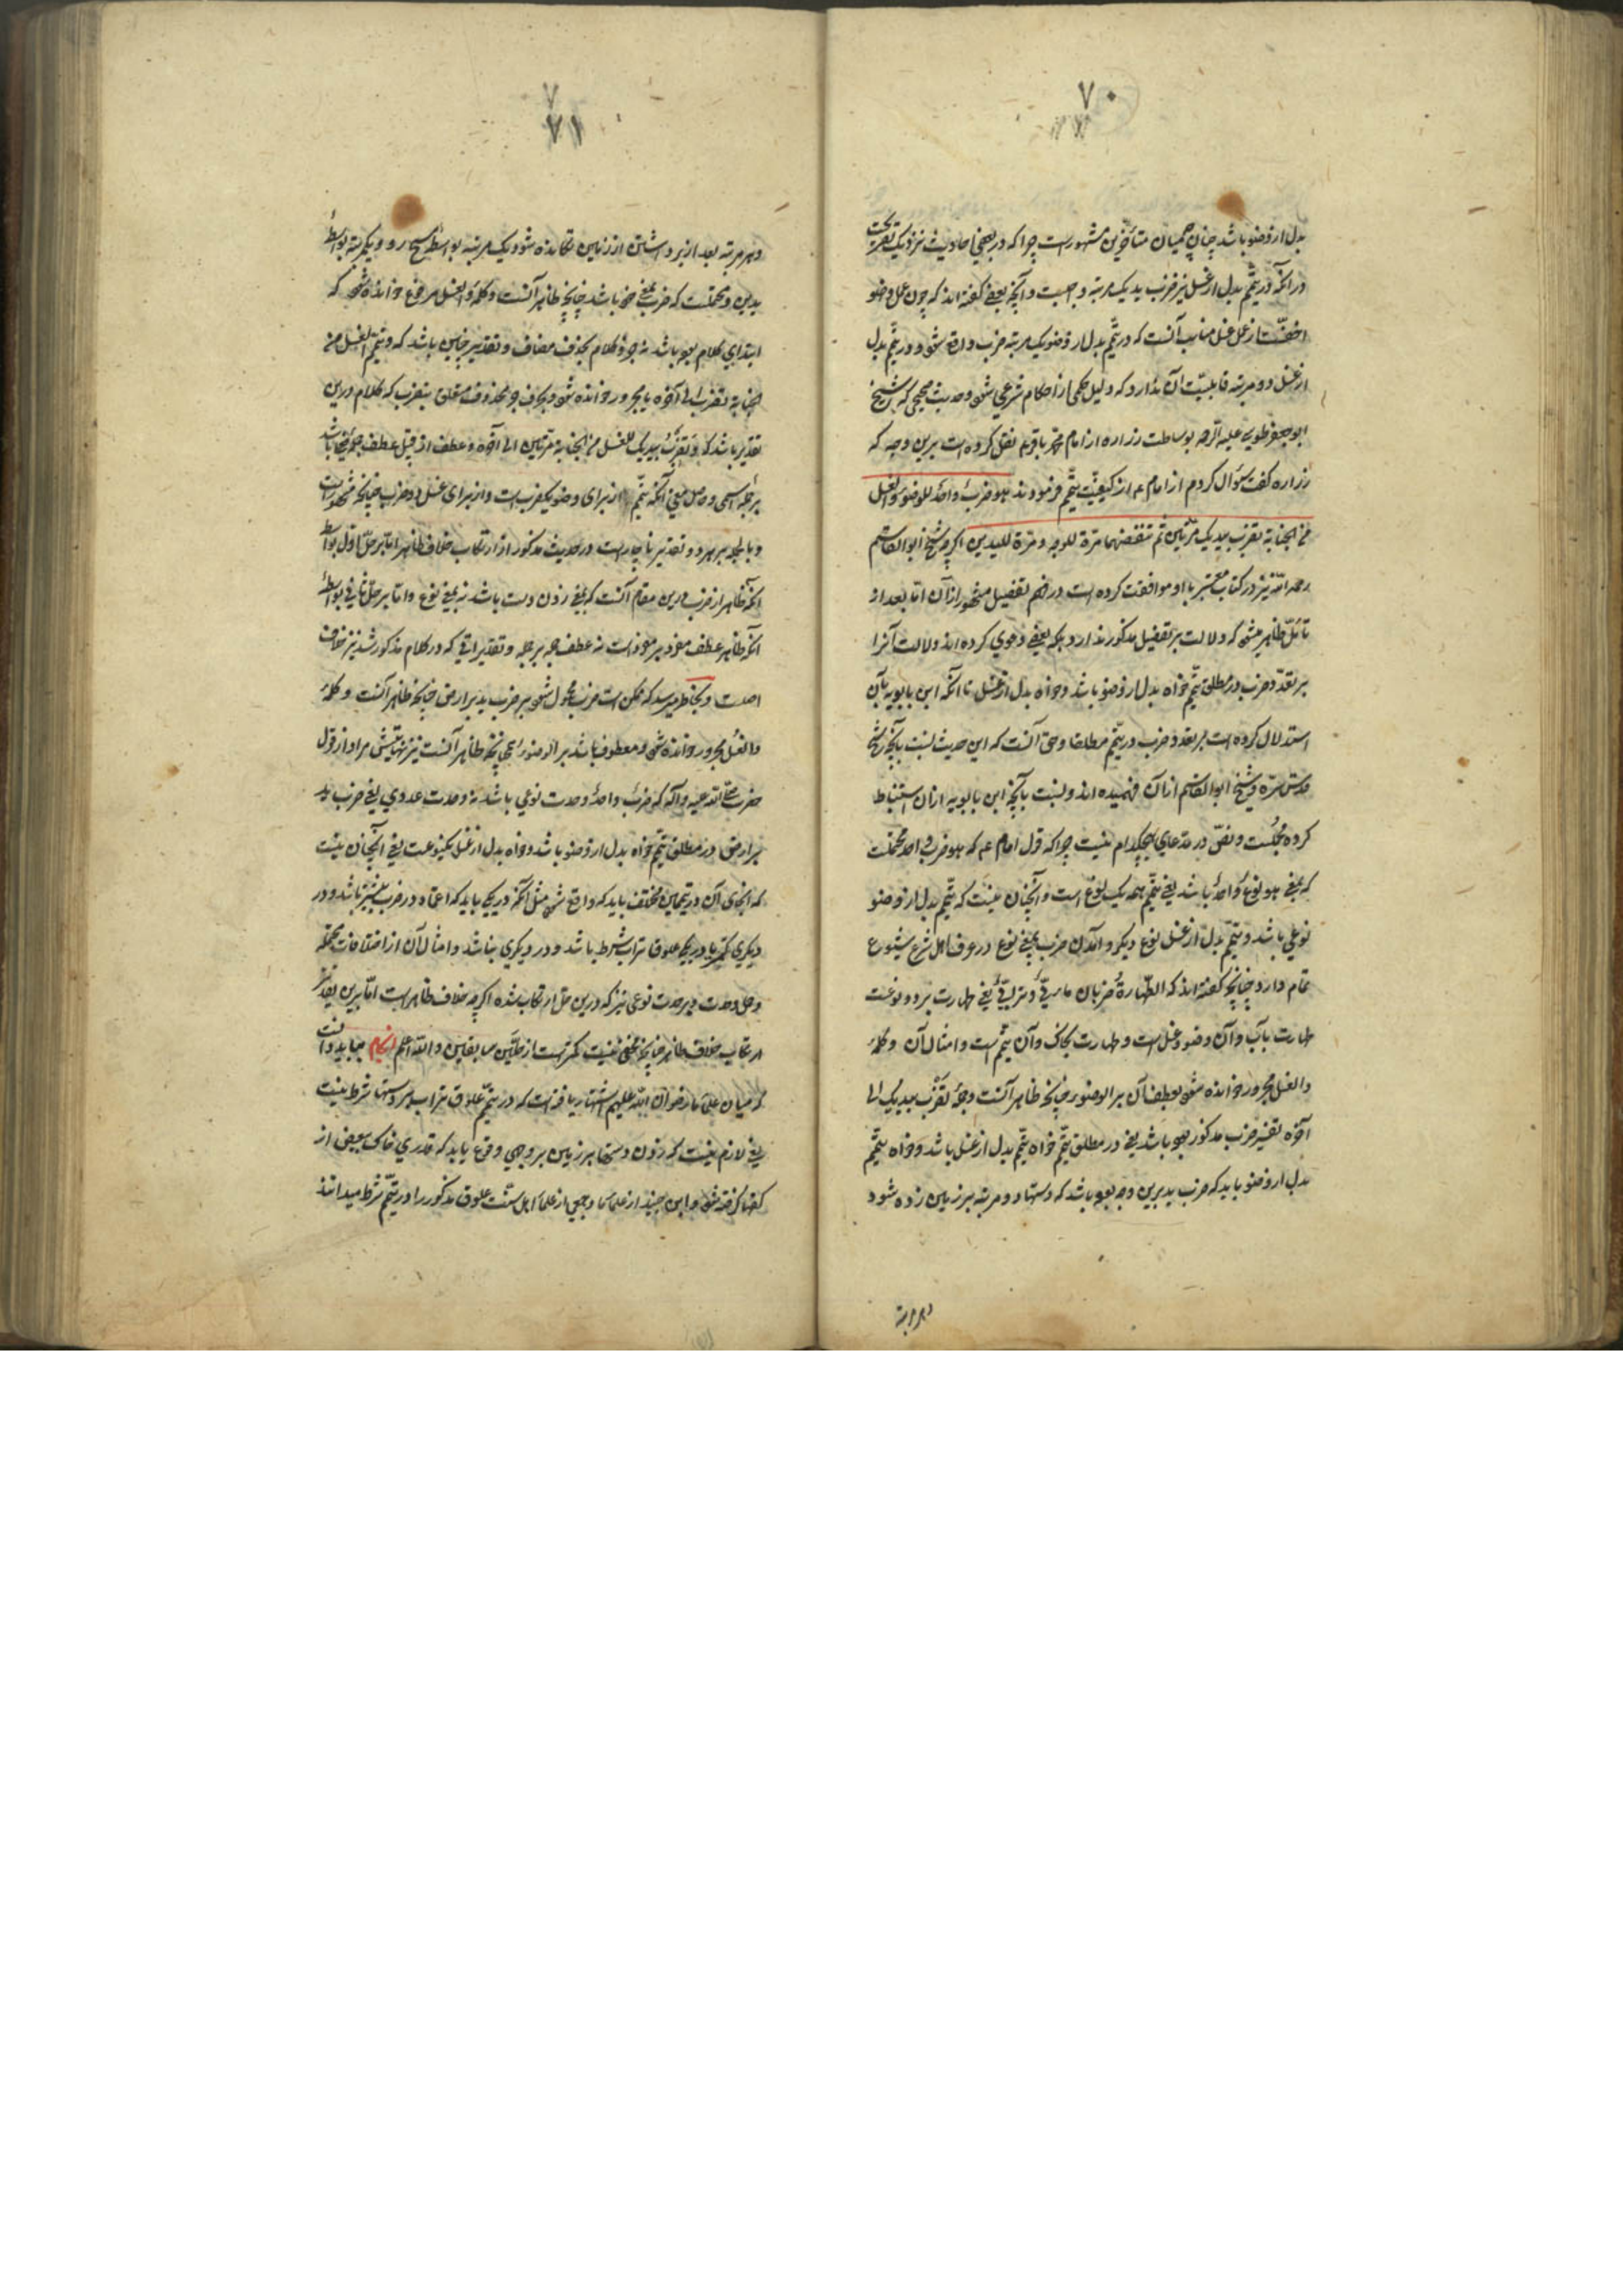 ۷۰
بدل از وضو باشد چنانچه میان متأخرین مشهورست چرا که در بعضی احادیث نیز
در آنکه در تیمم بدل از غسل نیز ضرب ید یک مرتبه واجبست و آنچه بعضی گفته‌اند که چون عمل وضو
اخفّست از عمل غسل مناسب آنست که در تیمم بدل از وضو یک مرتبه ضرب واقع شود و در تیمم بدل
از غسل دو مرتبه قابلیت آن ندارد که دلیل حکمی از احکام شرعی شود و حدیث صحیحی که شیخ
ابو جعفر طوسی علیه الرحمه بوساطت زراره از امام محمد باقر ع نقل کرده است برین وجه که
زراره گفت سؤال کردم از امام ع از کیفیت تیمم فرمودند هو ضربٌ واحدٌ للوضوء و الغسل
من الجنابة تضرب بیدیک مرتین ثم تنفضهما مرة للوجه و مرة للیدین اگرچه شیخ ابوالقاسم
رحمه الله نیز در کتاب معتبر با او موافقت کرده است در فهم تفصیل مشهور از آن اما بعد از
تأمل ظاهر میشود که دلالت بر تفصیل مذکور ندارد بلکه بعضی دعوی کرده‌اند دلالت آنرا
بر تعدد ضرب در مطلق تیمم خواه بدل از وضو باشد و خواه بدل از غسل تا آنکه ابن بابویه بآن
استدلال کرده است بر تعدد ضرب در تیمم مطلقا و حق آنست که این حدیث نسبت بآنچه شیخ
قدس سره و شیخ ابوالقاسم از آن فهمیده‌اند و نسبت بآنچه ابن بابویه از آن استنباط
کرده مجملست و نص در مدعای هیچکدام نیست چرا که قول امام ع که هو ضرب واحد محتملست
که بمعنی هو نوعٌ واحدٌ باشد یعنی تیمم همه یک نوع است و آنچنان نیست که تیمم بدل از وضو
نوعی باشد و تیمم بدل از غسل نوع دیگر و آمدن ضرب بمعنی نوع در عرف اهل شرع شیوع
تمام دارد چنانچه گفته‌اند که الطهارة ضربان مائیّة و ترابیّة یعنی طهارت بر دو نوعست
طهارت بآب و آن وضو و غسل است و طهارت بخاک و آن تیمم است و امثال آن و کلمهٔ
و الغسل مجرور خوانده شود بعطف آن بر الوضوء چنانچه ظاهر آنست و جملهٔ تضرب بیدیک الی
آخره تفسیر ضرب مذکور بوده باشد یعنی در مطلق تیمم خواه تیمم بدل از غسل باشد و خواه تیمم
بدل از وضو باید که ضرب ید برین وجه بوده باشد که دستها دو مرتبه بر زمین زده شود
۷۱
و هر مرتبه بعد از برداشتن از زمین تکانده شود یک مرتبه بواسطهٔ مسح رو و یکمرتبه بواسطهٔ
یدین و محتملست که ضرب بمعنی خود باشد چنانچه ظاهر آنست و کلمهٔ و الغسل مرفوع خوانده شود که
ابتدای کلام بوده باشد نه جزو کلام بحذف مضاف و تقدیر چنین باشد که و تیمم الغسل من
الجنابة تضرب الی آخره یا مجرور خوانده شود بحرف جر محذوف متعلق بتضرب که کلام درین
تقدیر باشد که و تضرب بیدیک للغسل من الجنابة مرتین الی آخره و عطف از قبیل عطف جمله
بر جمله اسمی و حاصل معنی آنکه تیمم از برای وضو یکضرب است و از برای غسل دو ضرب چنانچه مشهور است
و بالجمله بر هر دو تقدیر ناچار است در حدیث مذکور از ارتکاب خلاف ظاهر اما بر حل اول بواسطهٔ
آنکه ظاهر از ضرب درین مقام آنست که بمعنی زدن دست باشد نه بمعنی نوع و اما بر حل ثانی بواسطهٔ
آنکه ظاهر عطف مفرد بر مفرد است نه عطف جمله بر جمله و تقدیراتی که در کلام مذکور شد نیز خلاف
اصلست و بخاطر میرسد که ممکن است ضرب محمول شود بر ضرب ید بر ارض چنانچه ظاهر آنست و کلمهٔ
و الغسل مجرور خوانده شود و معطوف باشد بر الوضوء چنانچه ظاهر آنست نیز نهایتش مراد از قول
حضرت صلی الله علیه و آله که ضربٌ واحدٌ وحدت نوعی باشد نه وحدت عددی یعنی ضرب ید
بر ارض در مطلق تیمم خواه بدل از وضو باشد و خواه بدل از غسل یکنوعست یعنی آنچنان نیست
که انحای آن در تیممین مختلف باید که واقع شود مثل آنکه در یکی باید که اعتماد در ضرب بیشتر باشد و در
دیگری کمتر یا در یکی علوق تراب شرط باشد و در دیگری نباشد و امثال آن از اختلافات محتمله
و حمل وحدت بر وحدت نوعی نیز که درین حل ارتکاب شده اگرچه خلاف ظاهر است اما برین تقدیر
ارتکاب خلاف ظاهر چنانچه مخفی نیست کمتر است از حلّین سابقین و الله اعلم بباید دانست
که میان علما رضوان الله علیهم اشتهار یافته است که در تیمم علوق تراب بر دستها شرط نیست
یعنی لازم نیست که زدن دستها بر زمین بر وجهی وقوع یابد که قدری خاک ببعض از
کفها گرفته شود و ابن جنید از علمای ما و جمعی از علمای اهل سنت علوق مذکور را در تیمم شرط میدانند
و هر مرتبه